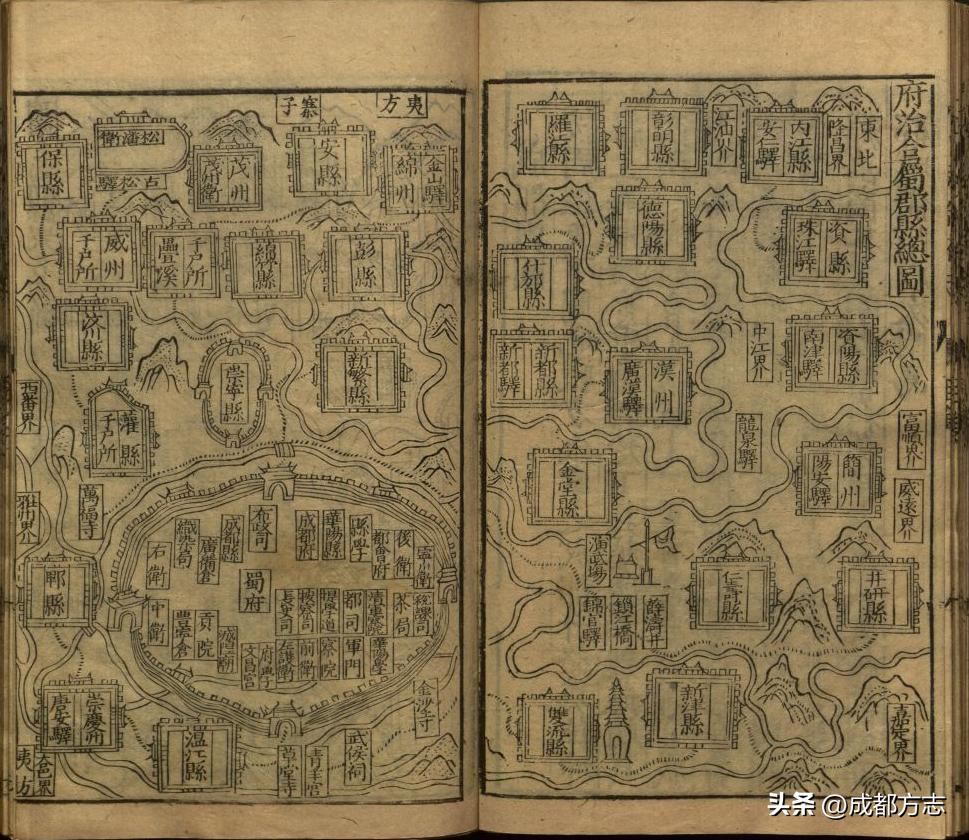 府治全蜀郡縣總圖
東北
隆昌界
內江縣
安仁驛
江油界
彰明縣
羅江縣
德陽縣
資縣
珠江驛
什邡縣
中江界
資陽縣
南津驛
新都縣
新都驛
漢州
廣漢驛
富順界
龍泉驛
簡州
陽安驛
威遠界
金堂縣
演武場
仁壽縣
井研縣
薛濤井
鎖江橋
錦官驛
新津縣
雙流縣
嘉定界
夷方
寨子
金山驛
綿州
安縣
茂州
茂衛
松潘衛
古松驛
保縣
彭縣
綿縣
疊溪
千戶所
威州
千戶所
汶川縣
新繁縣
崇寧縣
西番界
灌縣
千戶所
萬福寺
雅州界
布政司
成都縣
成都府
華陽縣
縣學
都督府
後衛
寧川衛
織染局
廣備倉
右衛
蜀府
中衛
豐豫倉
貢院
城隍廟
長史司
按察司
都司
清軍察院
茶局
文昌宮
府學
左護衛
前衛
察院
軍門
華陽學
郫縣
金沙寺
崇慶州
唐安驛
溫江縣
草堂寺
青羊宮
武侯祠
大邑界
夷方
头条 @成都方志